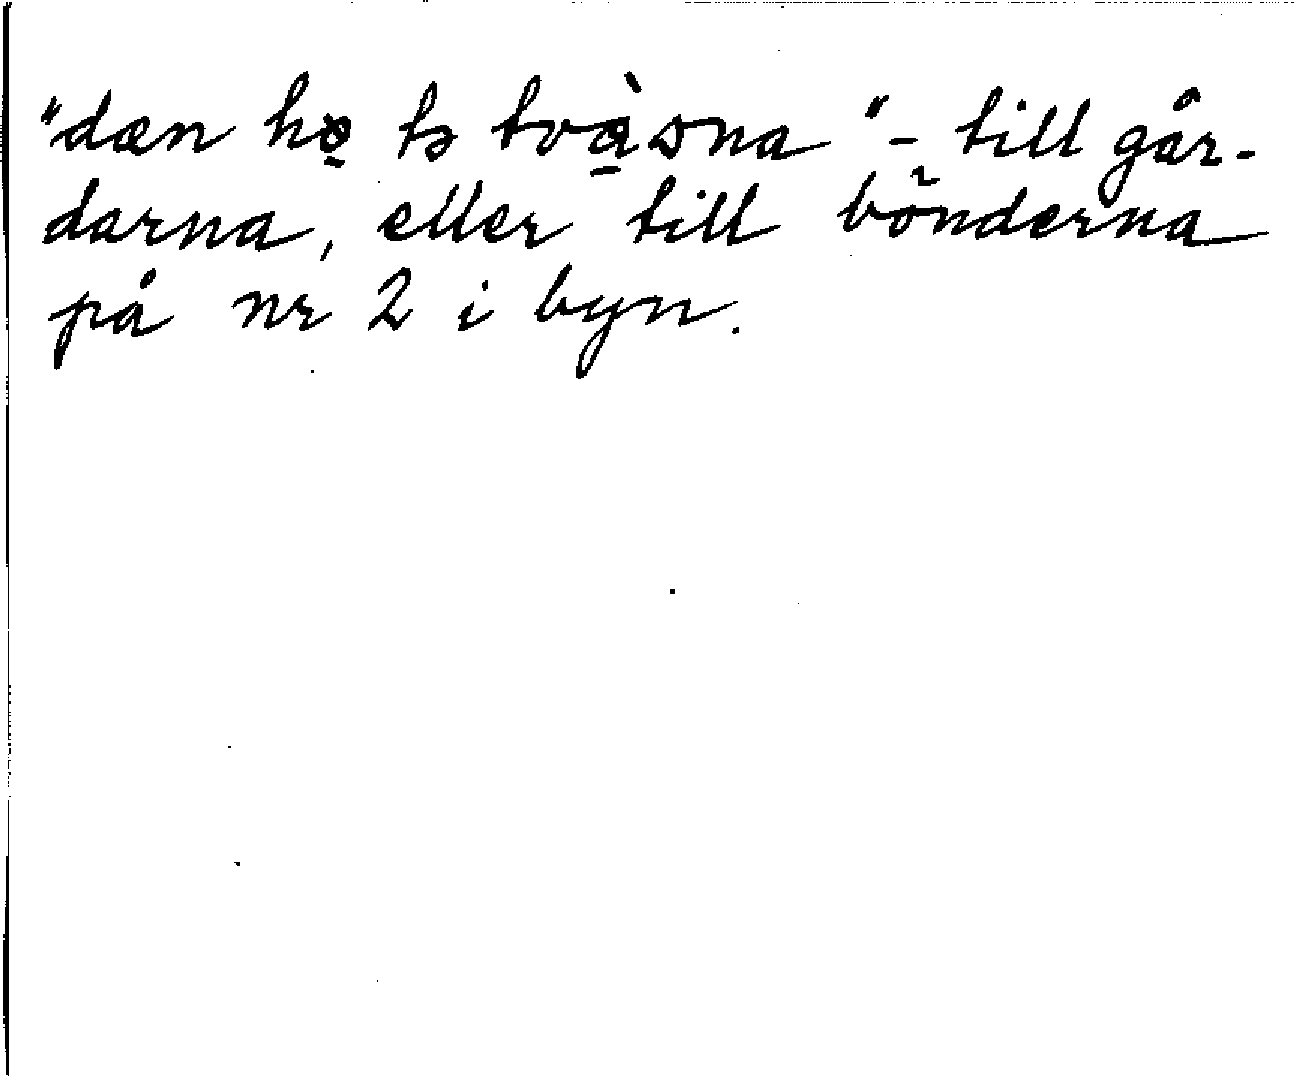 "dæn ho̱ ts tvà̱ɔna" - till går-
darna, eller till bönderna
på nr 2 i byn.